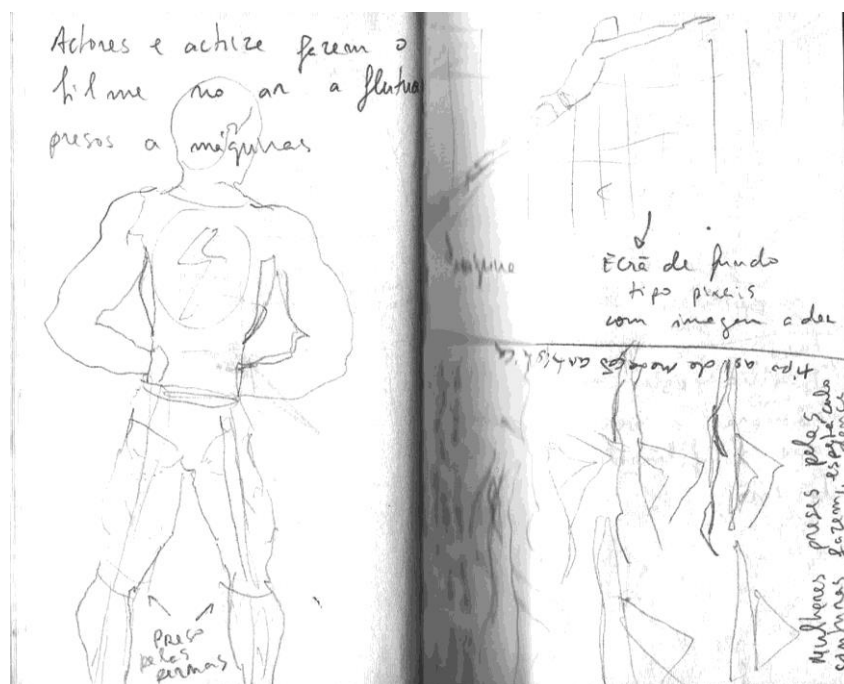 Actores e actrize fazem o
filme no ar a flutua
presos a máquinas
preso
pelas
pernas
Ecrã de fundo
tipo pixeis
com imagem a dar
tipo asi de natação artística
Mulheres presas pelas
cinturas fazem espetáculo